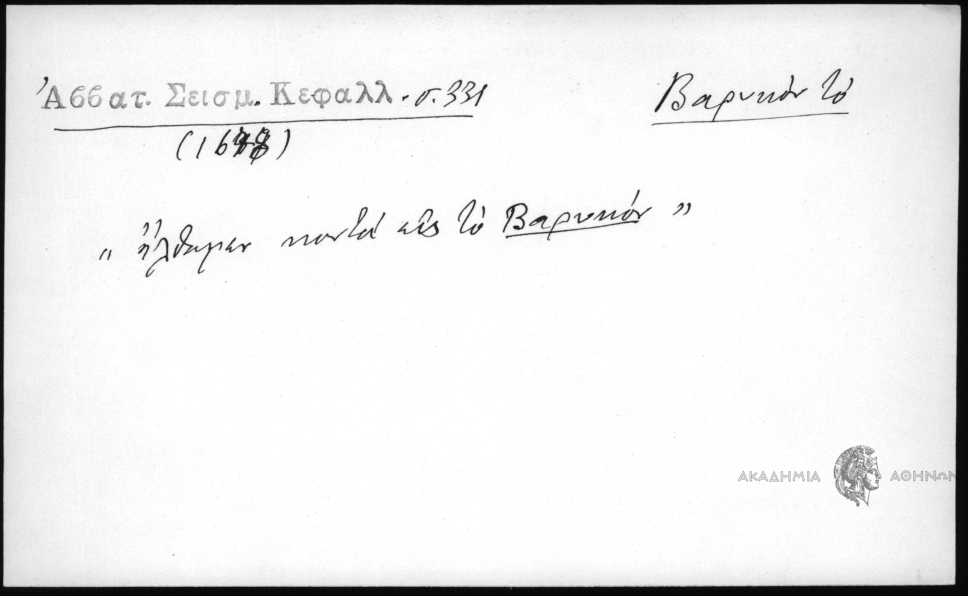 Ἀββατ. Σεισμ. Κεφαλλ. σ. 331
Βαρυκὸν τὸ
"ἤλθαμεν κοντὰ εἰς τὸ Βαρυκόν"
ΑΚΑΔΗΜΙΑ ΑΘΗΝΩΝ